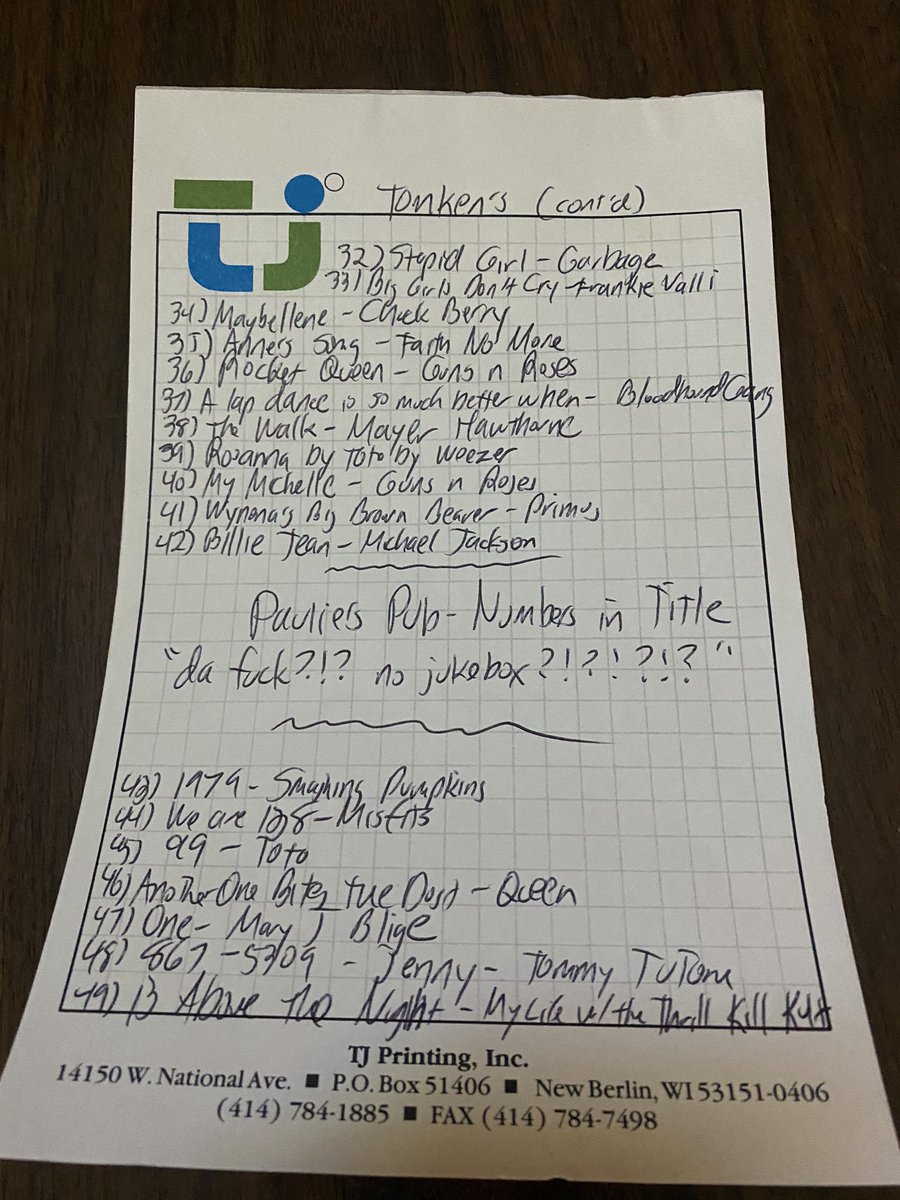 TJ
Tonken's (cont'd)
32) Stupid Girl - Garbage
33) Big Girls Don't Cry - Frankie Valli
34) Maybellene - Chuck Berry
35) Anne's Song - Faith No More
36) Rocket Queen - Guns n Roses
37) A lap dance is so much better when - Bloodhound Gang
38) The Walk - Mayer Hawthorne
39) Rosanna by Toto by Weezer
40) My Michelle - Guns n Roses
41) Wynona's Big Brown Beaver - Primus
42) Billie Jean - Michael Jackson
Paulie's Pub - Numbers in Title
"da fuck?!? no jukebox?!?!?!?"
43) 1979 - Smashing Pumpkins
44) We are 138 - Misfits
45) 99 - Toto
46) Another One Bites the Dust - Queen
47) One - Mary J Blige
48) 867-5309 - Jenny - Tommy TuTone
49) 13 Above the Night - My Life w/ the Thrill Kill Kult
TJ Printing, Inc.
14150 W. National Ave. ■ P.O. Box 51406 ■ New Berlin, WI 53151-0406
(414) 784-1885 ■ FAX (414) 784-7498